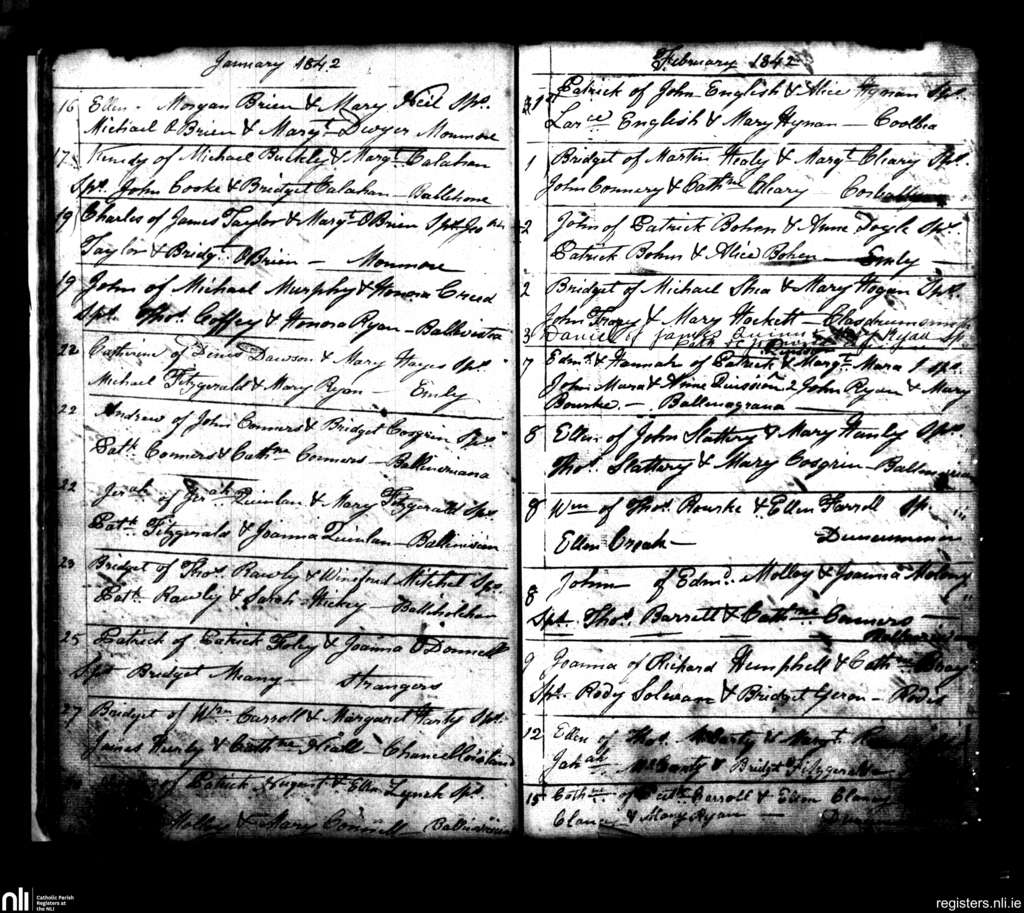 January 1842
16 Ellen - Morgan Brien & Mary Neil Sps.
Michael O Brien & Margt. Dwyer Monmore
17 Kennedy of Michael Buckly & Margt. Calahan
Sps. John Cooke & Bridget Calahan - Ballehone
19 Charles of James Taylor & Margt. O Brien Sps.
Taylor & Bridgt. O Brien - Monmore
19 John of Michael Murphy & Honora Creed
Sps. Thos. Coffey & Honora Ryan - Ballivistea
22 Catherine of Denis Dawson & Mary Hayes Sps.
Michael Fitzgerald & Mary Ryan - Emly
22 Andrew of John Conners & Bridget Cosgrien Sps.
Patk. Conners & Cathne Conners -
22 Jerah of Jerah Quinlan & Mary Fitzgerald Sps.
Patk Fitzgerald & Joanna Quinlan -
23 Bridget of Thos. Rawly & Winefred Mitchel Sps.
Patk. Rawly & Sarah Hickey - Balleholehan
25 Patrick of Patrick Foley & Joanna O Donnell
Sps. Bridget Meany - Strangers
27 Bridget of Wm Carroll & Margaret Harty Sps.
James Hurly & Cathne Niall - Chancellorsland
of Patrick & Ellen Lynch Sps.
Molloy & Mary Connell -
February 1842
31st Patrick of John English & Alice Hynan Sps.
Larce English & Mary Hynan - Coolboa
1 Bridget of Martin Healy & Margt. Cleary Sps.
John Connery & Cathne Cleary -
2 John of Patrick Bohen & Anne Toyle Sps.
Patrick Bohen & Alice Bohen - Emly
2 Bridget of Michael Shea & Mary Hogan Sps.
John & Mary Hackett -
3 Daniel of James Quinn Ryan Sps.
7 Edmd. & Hannah of Patrick & Margt. Mara Sps.
John Mara & Anne 2 John Ryan & Mary
Bourke - Ballenagrana
8 Ellen of John Slattery & Mary Hanly Sps.
Thos. Slattery & Mary Cosgrien -
8 Wm of Thos. Rourke & Ellen Farrell Sp.
Ellen Creak -
8 John of Edmd. Molloy & Joanna Molony
Sps. Thos. Barrett & Cathne Conners -
9 Joanna of Richard Hemphell & Cathne
Sps. Rody Solivan & Bridget Geron - Rodis
12 Ellen of Thos. McCarty & Margt.
McCarty & Bridget Fitzgerald
15 Cathne of Carroll & Ellen Clancy
Clancy & Mary Ryan -
nli
Catholic Parish
Registers at
the NLI
registers.nli.ie